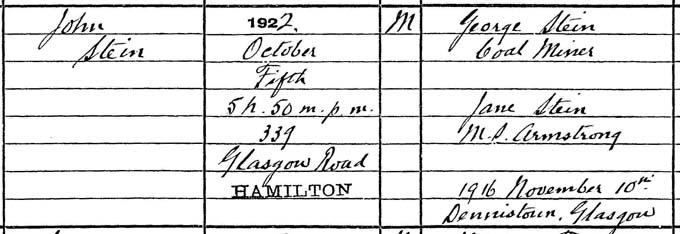 John
Stein
1922.
October
Fifth
5 h. 50 m. p.m.
339
Glasgow Road
HAMILTON
M
George Stein
Coal Miner
Jane Stein
M.S. Armstrong
1916 November 10th
Dennistoun, Glasgow